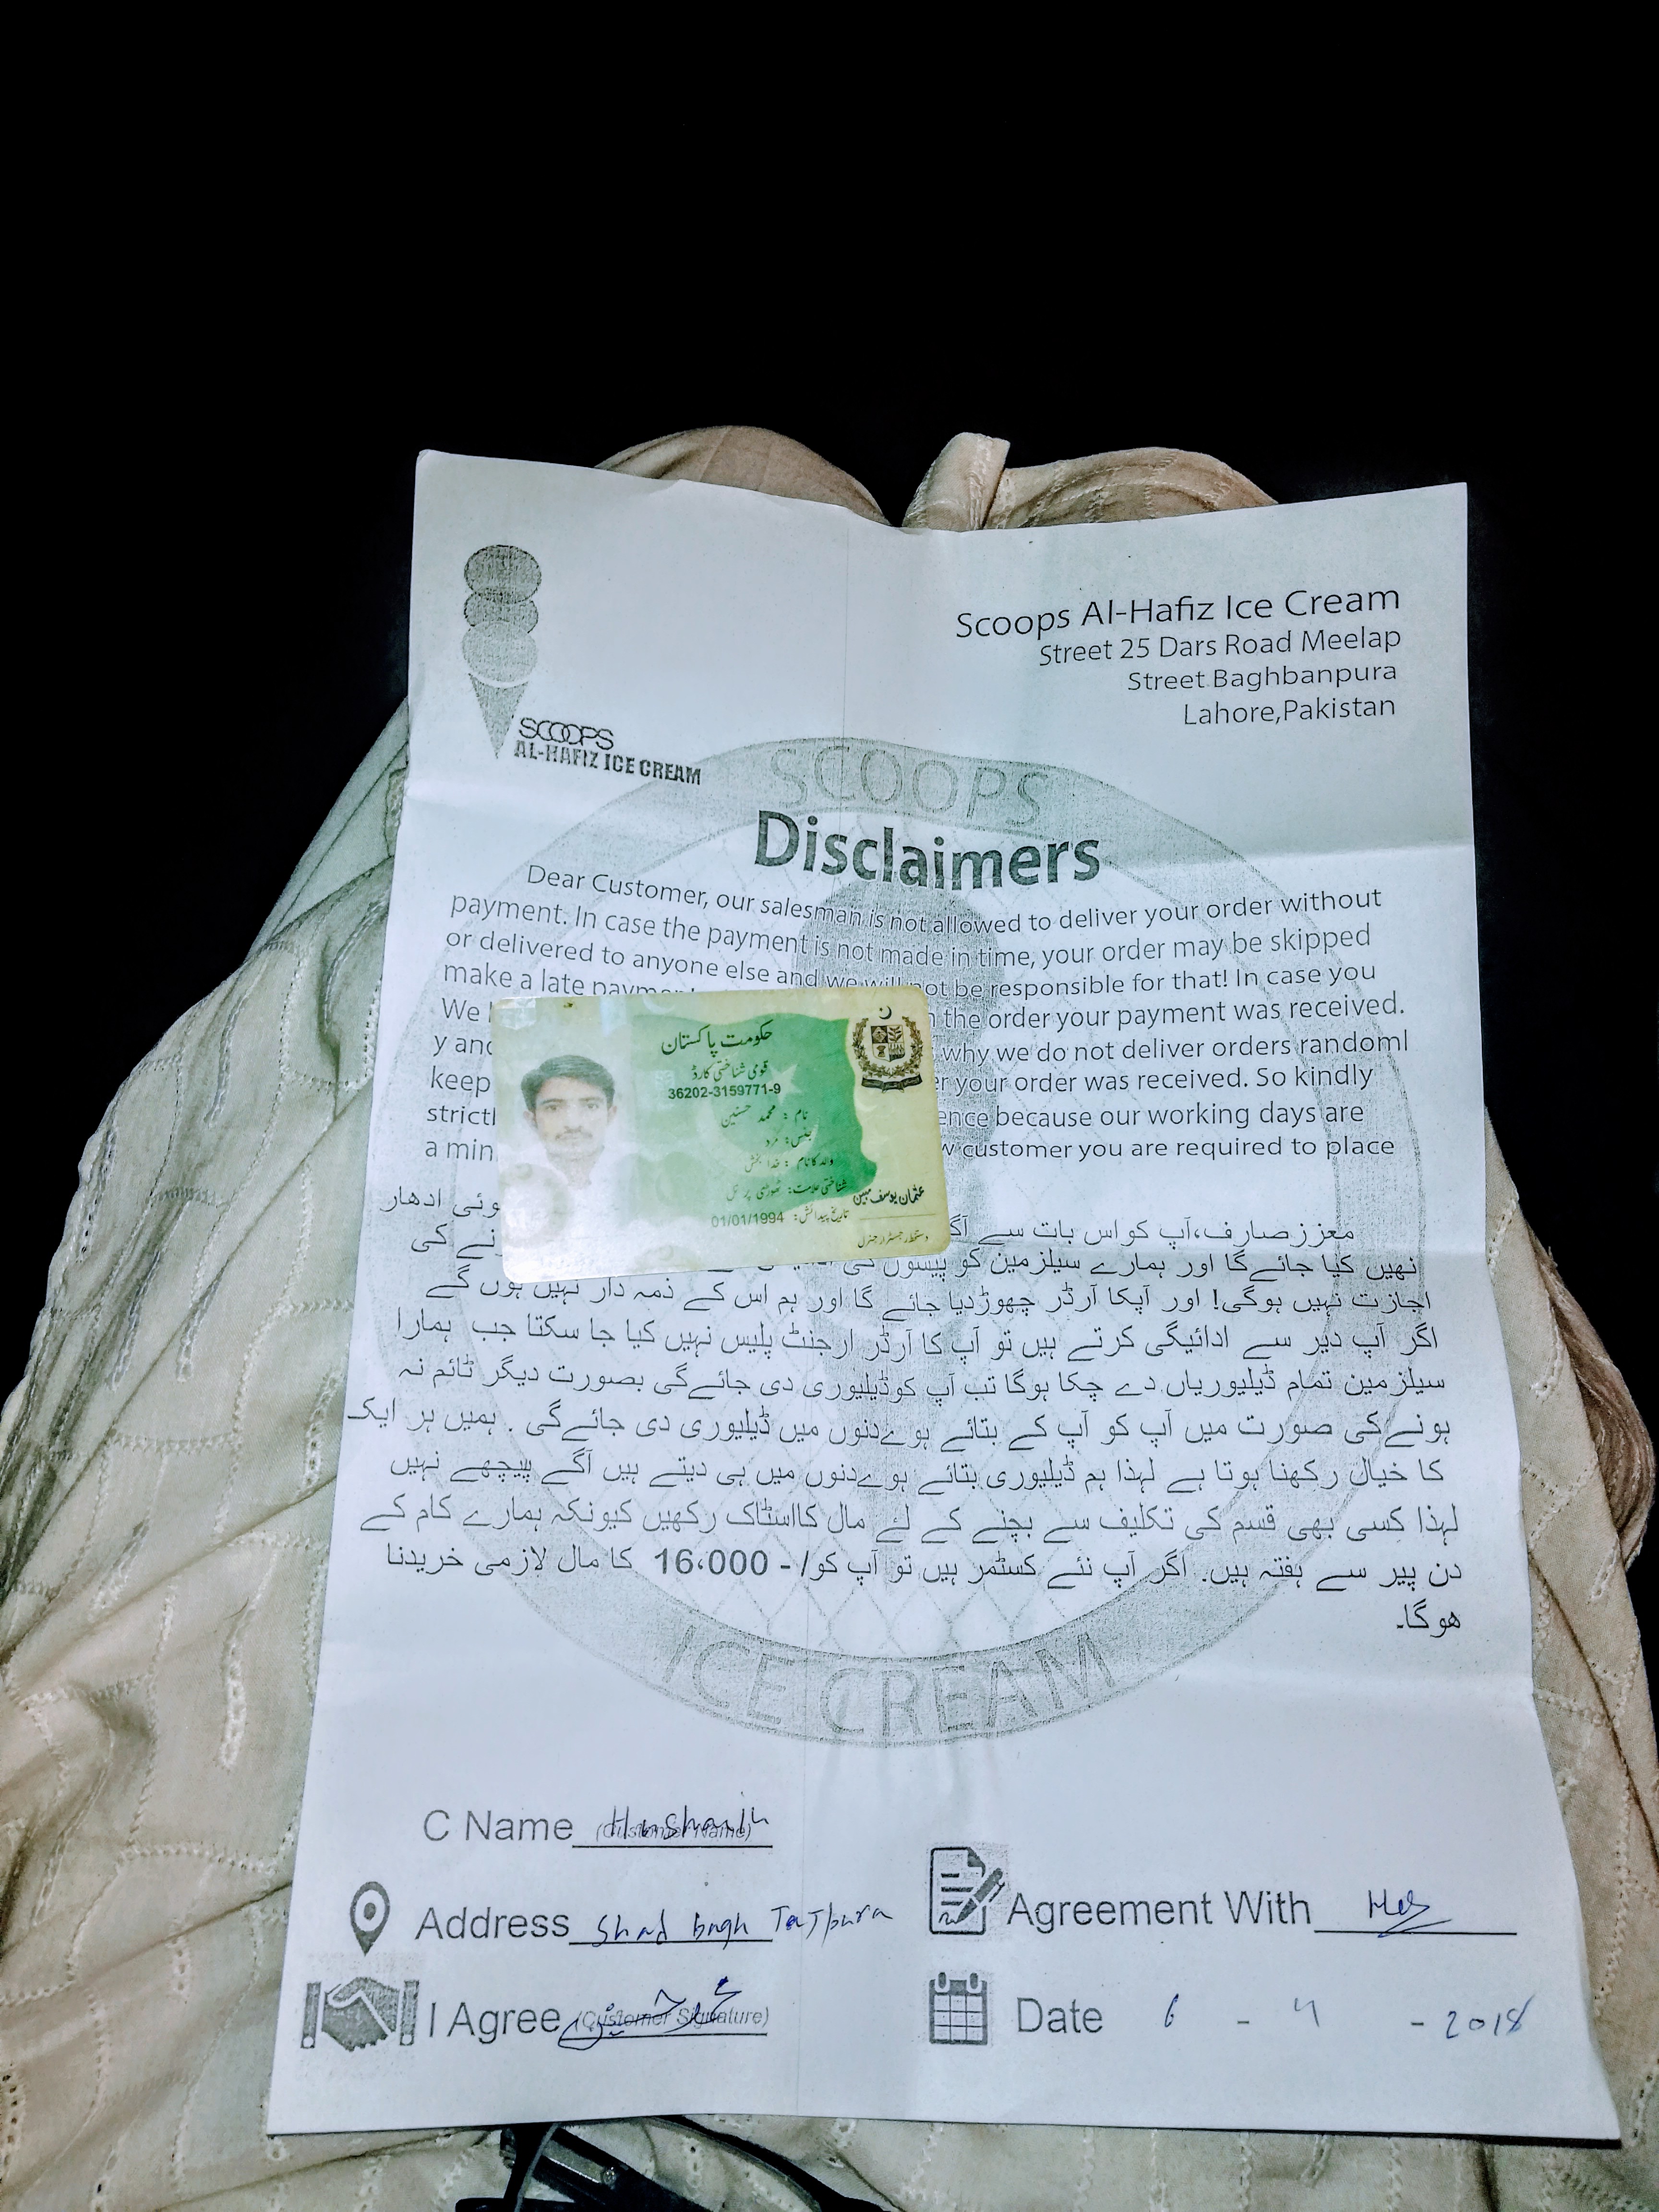 SCOOPS
AL-HAFIZ ICE CREAM
Scoops Al-Hafiz Ice Cream
Street 25 Dars Road Meelap
Street Baghbanpura
Lahore,Pakistan
SCOOPS
Disclaimers
Dear Customer, our salesman is not allowed to deliver your order without
payment. In case the payment is not made in time, your order may be skipped
or delivered to anyone else and we will not be responsible for that! In case you
make a late
We the order your payment was received.
y why we do not deliver orders randoml
keep your order was received. So kindly
because our working days are
a customer you are required to place
حکومت پاکستان
قومی شناختی کارڈ
36202-3159771-9
نام : محمد حسنین
جنس: مرد
والد کا نام : خدا بخش
شناختی علامت: ٹھوڑی پر تل
تاریخ پیدائش: 01/01/1994
عثمان یوسف مبین
دستخط رجسٹرار جنرل
معزز صارف،آپ کو اس بات سے ادھار
نہیں کیا جائے گا اور ہمارے سیلزمین کو پیسوں کی
اجازت نہیں ہوگی! اور آپکا آرڈر چھوڑدیا جائے گا اور ہم اس کے ذمہ دار نہیں ہوں گے
اگر آپ دیر سے ادائیگی کرتے ہیں تو آپ کا آرڈر ارجنٹ پلیس نہیں کیا جا سکتا جب ہمارا
سیلزمین تمام ڈیلیوریاں دے چکا ہوگا تب آپ کوڈیلیوری دی جائےگی بصورت دیگر ٹائم نہ
ہونےکی صورت میں آپ کو آپ کے بتائے ہوےدنوں میں ڈیلیوری دی جائےگی . ہمیں ہر ایک
کا خیال رکھنا ہوتا ہے لہذا ہم ڈیلیوری بتائے ہوےدنوں میں ہی دیتے ہیں آگے پیچھے نہیں
لہذا کسی بھی قسم کی تکلیف سے بچنے کے لئے مال کااسٹاک رکھیں کیونکہ ہمارے کام کے
دن پیر سے ہفتہ ہیں. اگر آپ نئے کسٹمر ہیں تو آپ کو/- 16،000 کا مال لازمی خریدنا
ھوگا۔
ICE CREAM
C Name (Customer Name)
Address Shad bagh Tajpura
Agreement With
I Agree (Customer Signature) محمد حسنین
Date 6 - 4 - 2018